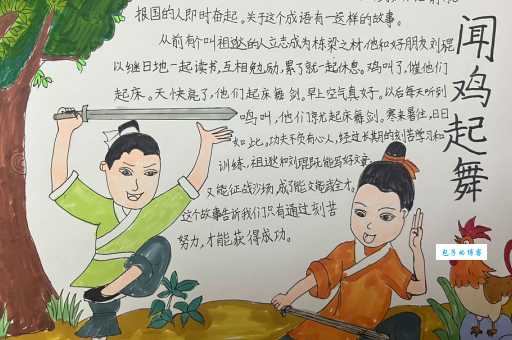 闻鸡起舞
报国的人即时奋起。关于这个成语有一这样的故事。
从前有个叫祖逖的人立志成为栋梁之材,他和好朋友刘琨
以继日地一起读书,互相勉励,累了就一起休息。鸡叫了,催他们
起床。天快亮了,他们起床舞剑。早上空气真好。以后每天听到
鸣叫,他们就起床舞剑。寒来暑往,日日
如此。功夫不负有心人,经过长期的刻苦学习和
训练,祖逖和刘琨既能写好文章,
又能征战沙场,成了能文能武全才。
这个故事告诉我们只有通过刻苦
努力,才能获得成功。